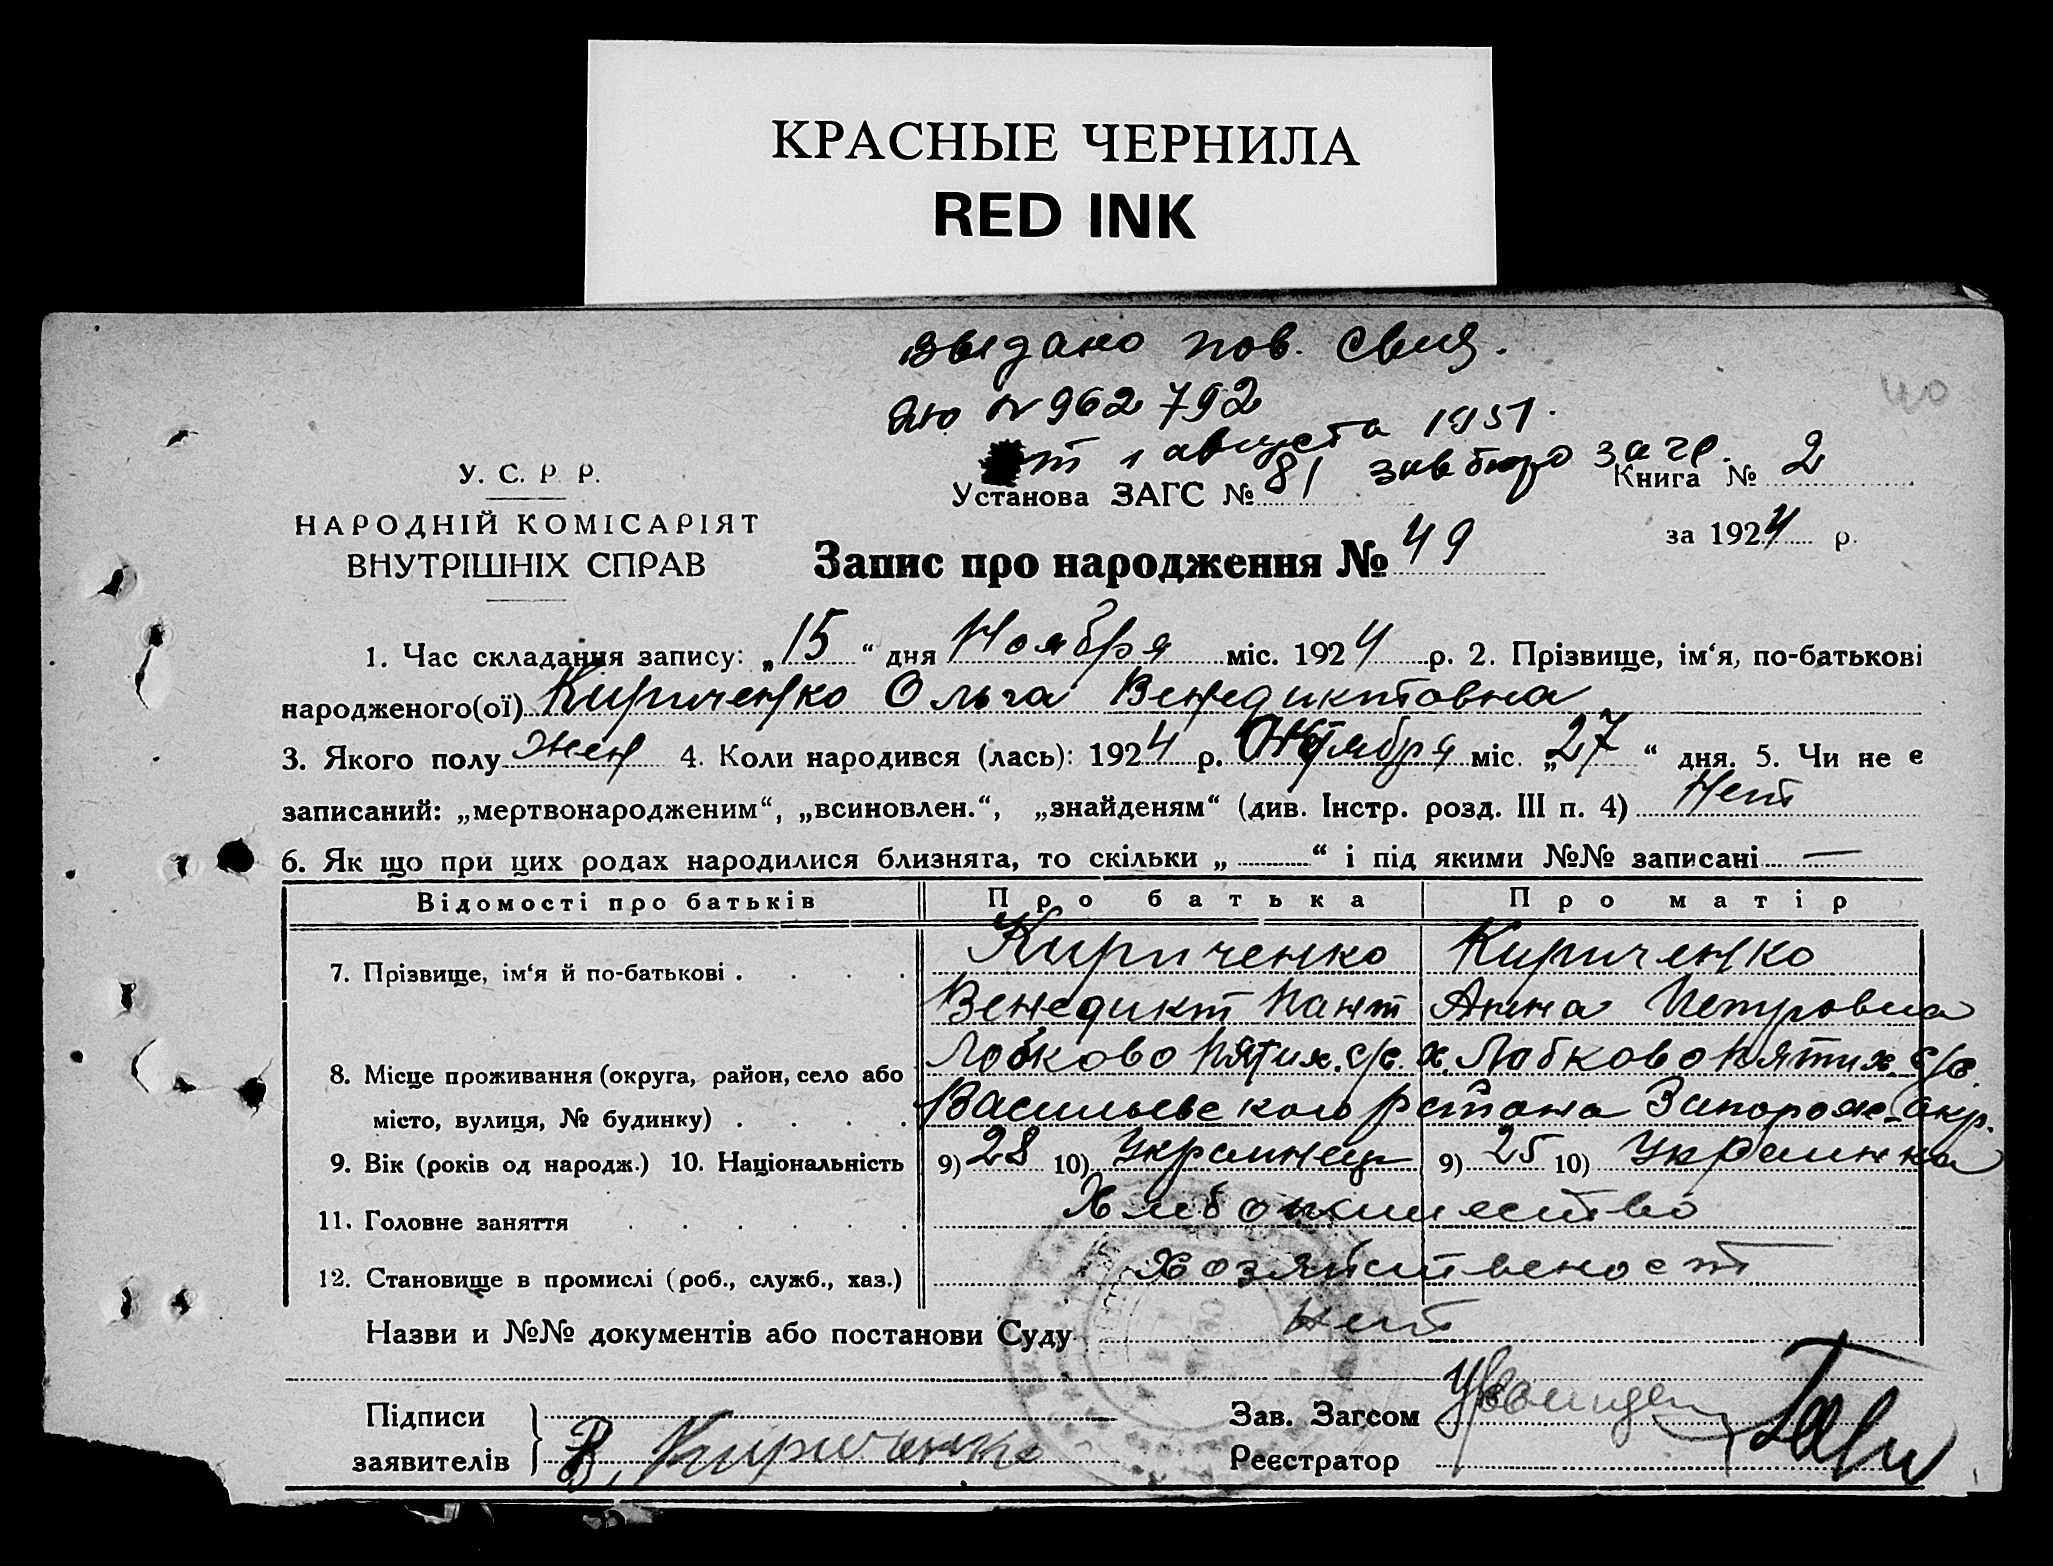 КРАСНЫЕ ЧЕРНИЛА
RED INK
выдано пов. свид.
ЯЮ № 962792
от 1 августа 1951.
завбюро загс.
40
У. С. Р. Р.
НАРОДНІЙ КОМІСАРІЯТ
ВНУТРІШНІХ СПРАВ
Установа ЗАГС № 81
Книга № 2
за 1924 р.
Запис про народження № 49
1. Час складання запису: „15“ дня Ноября міс. 1924 р. 2. Прізвище, ім‘я, по-батькові
народженого(ої) Кириченко Ольга Венедиктовна
3. Якого полу жен 4. Коли народився (лась): 1924 р. Октября міс. „27“ дня. 5. Чи не є
записаний: „мертвонародженим“, „всиновлен.“, „знайденям“ (див. Інстр. розд. III п. 4) Нет
6. Як що при цих родах народилися близнята, то скільки „ “ і під якими №№ записані —
Відомості про батьків Про батька Про матір
7. Прізвище, ім‘я й по-батькові Кириченко Кириченко
Венедикт Пант Анна Петровна
8. Місце проживання (округа, район, село або Лобково Пятих. с/с. х. Лобково Пятих. с/с.
місто, вулиця, № будинку) Васильевского района Запорож. окр.
9. Вік (років од народж.) 10. Національність 9) 28 10) Украинец 9) 25 10) Украинка
11. Головне заняття Хлебопашество
12. Становище в промислі (роб., служб., хаз.) хозяйственост
Назви и №№ документів або постанови Суду нет
Підписи
заявителів В. Кириченко
Зав. Загсом
Реєстратор